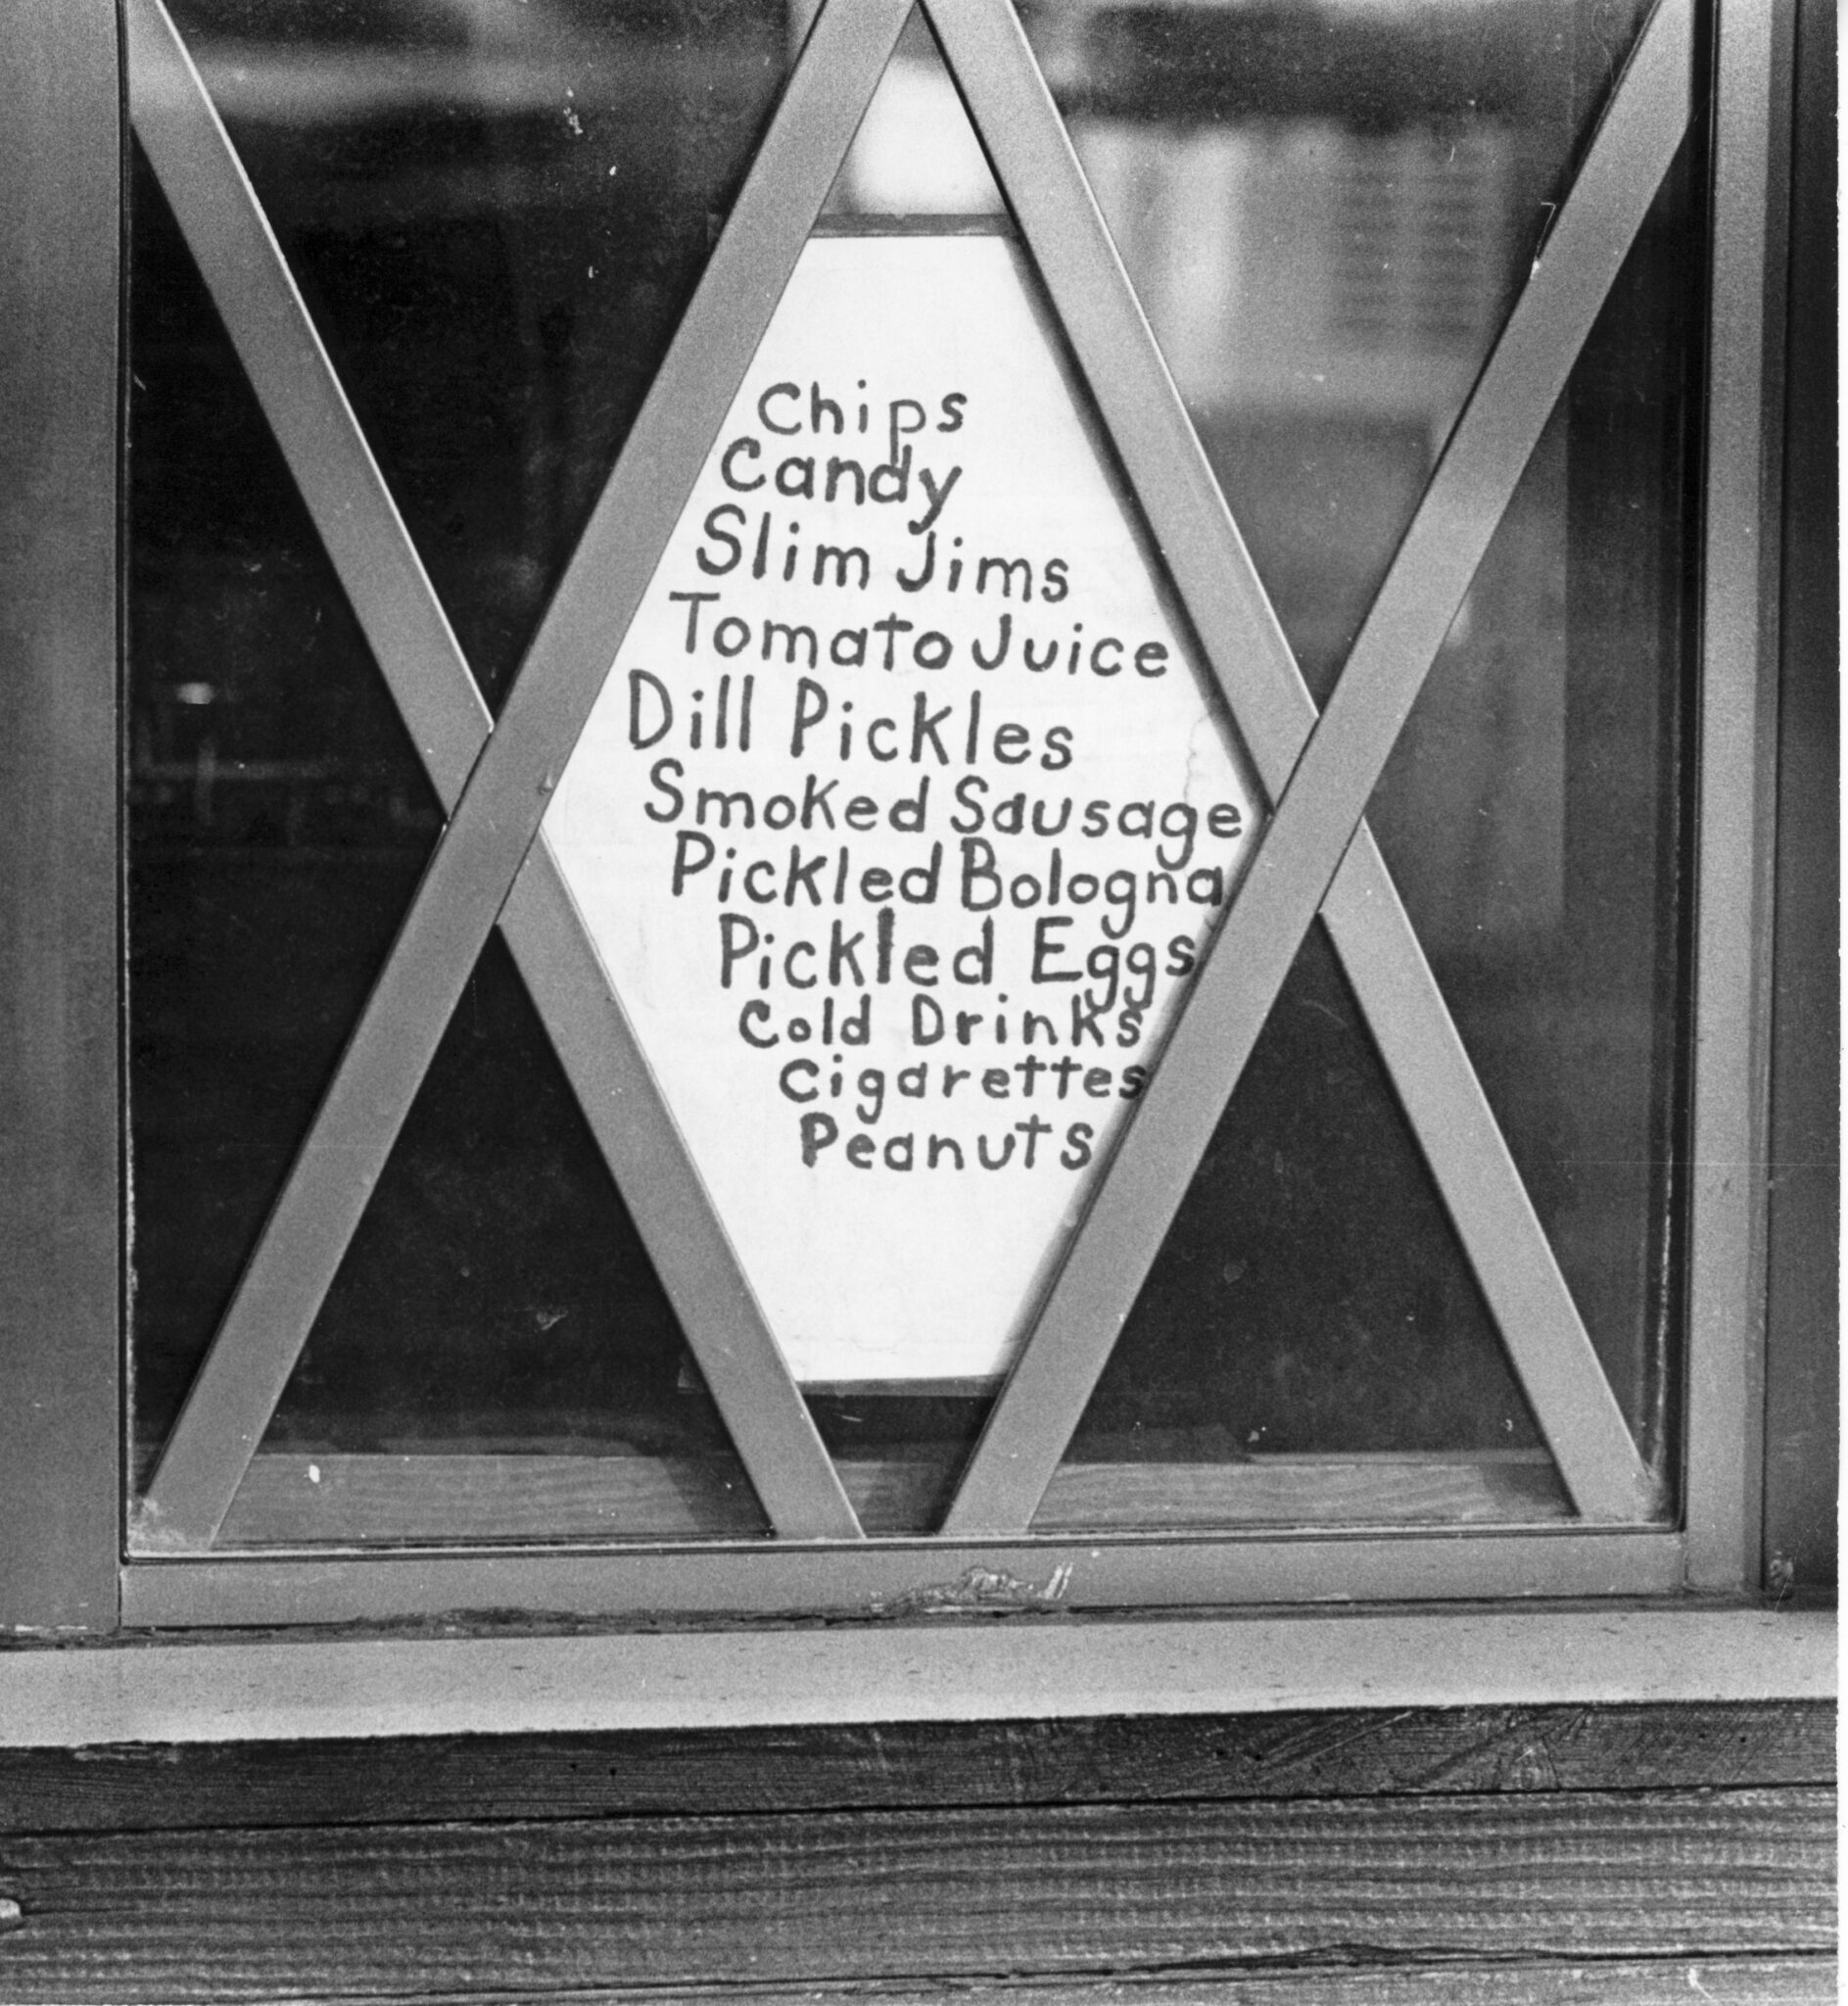 Chips
Candy
Slim Jims
Tomato Juice
Dill Pickles
Smoked Sausage
Pickled Bologna
Pickled Eggs
Cold Drinks
Cigarettes
Peanuts